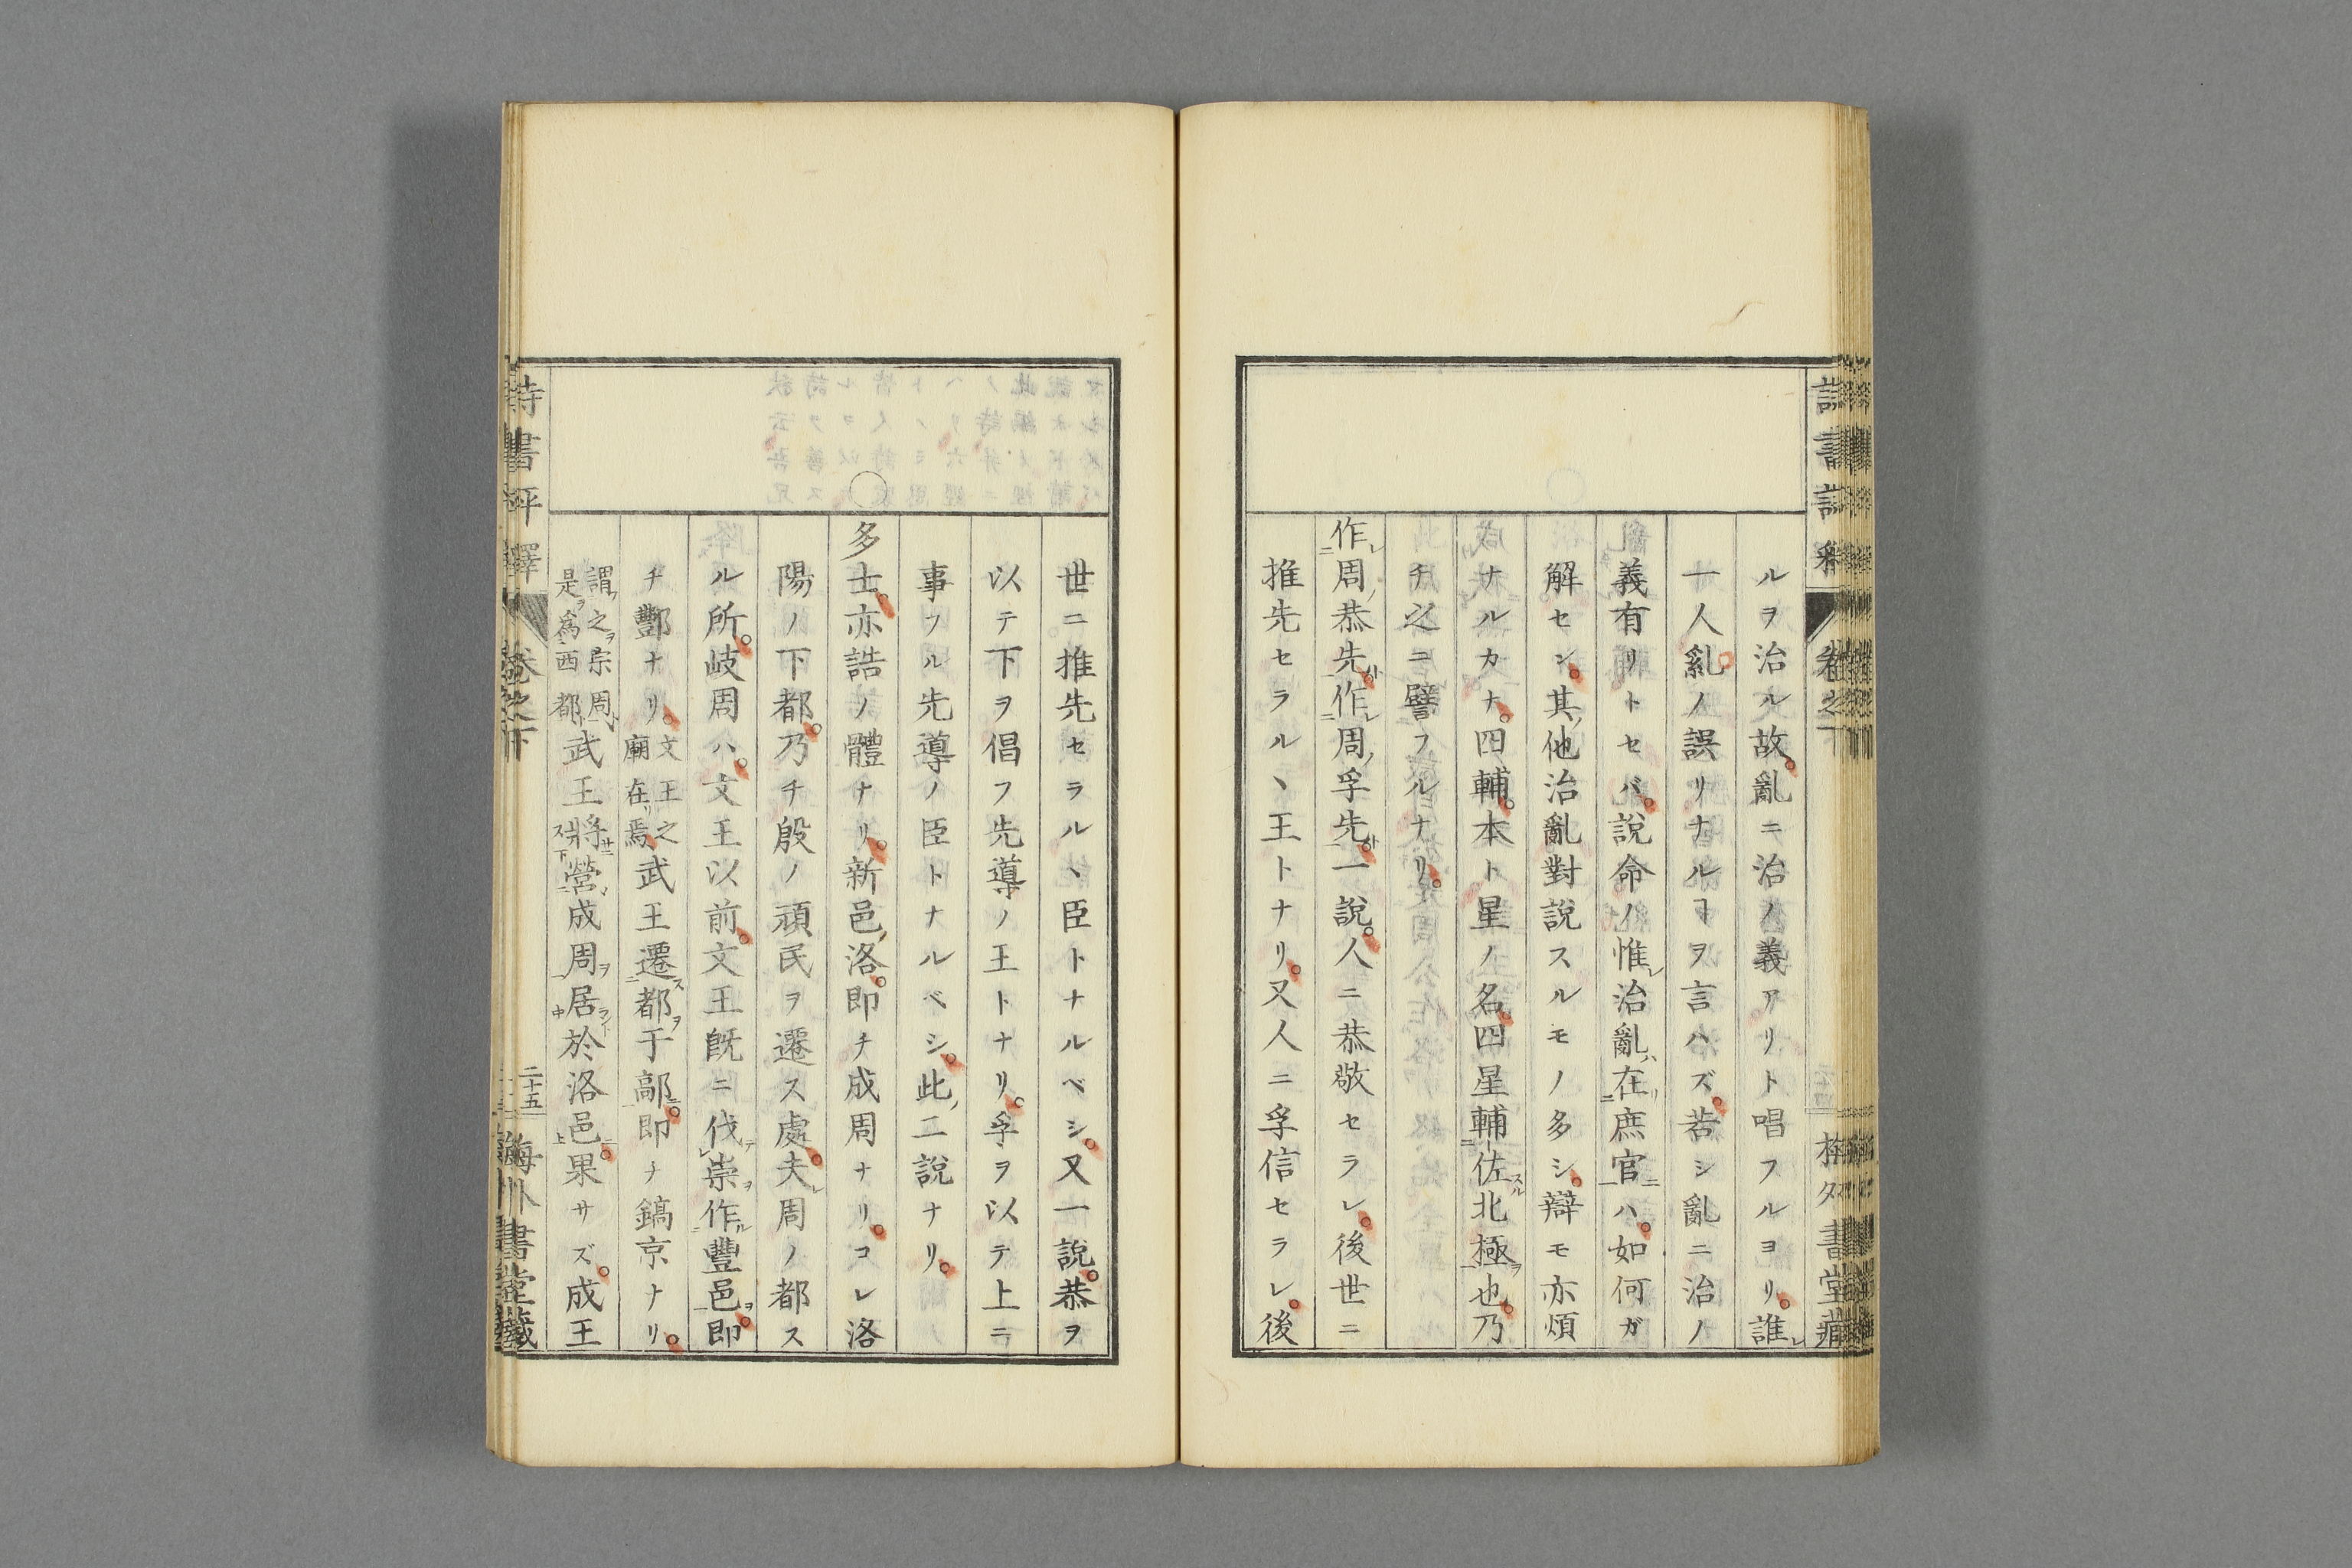 ルヲ治ル故亂ニ治ノ義アリト唱フルヨリ誰レ
一人亂ノ誤リナルヿヲ言ハズ若シ亂ニ治ノ
義有リトセバ說命ノ惟レ治亂ハ在リ二庶官ニ一ハ如何ガ
解セン其ノ他治亂對說スルモノ多シ辯モ亦煩
ナルカナ四輔本ト星ノ名四星輔二佐スル北極ヲ一也乃
チ之ニ譬フルナリ
作二レ周ノ恭先ト一作二レ周ノ孚先ト一一說人ニ恭敬セラレ後世ニ
推先セラルヽ王トナリ又人ニ孚信セラレ後
世ニ推先セラルヽ臣トナルベシ又一說恭ヲ
以テ下ヲ倡フ先導ノ王トナリ孚ヲ以テ上ニ
事フル先導ノ臣トナルベシ此ノ二說ナリ
多士亦誥ノ體ナリ新邑ノ洛即チ成周ナリコレ洛
陽ノ下都乃チ殷ノ頑民ヲ遷ス處夫レ周ノ都ス
ル所岐周ハ文王以前文王既ニ伐テレ崇ヲ作ル二豐邑ヲ一即
チ酆ナリ文王之廟在リ焉武王遷ス二都ヲ于鄗ニ一即チ鎬京ナリ
謂フ之ヲ宗周ト是ヲ爲西都武王將ニ營二成周ヲ一居ラント中於洛邑ニ上果サズ成王
詩書評釋 卷之下 二十五 梅外書堂藏